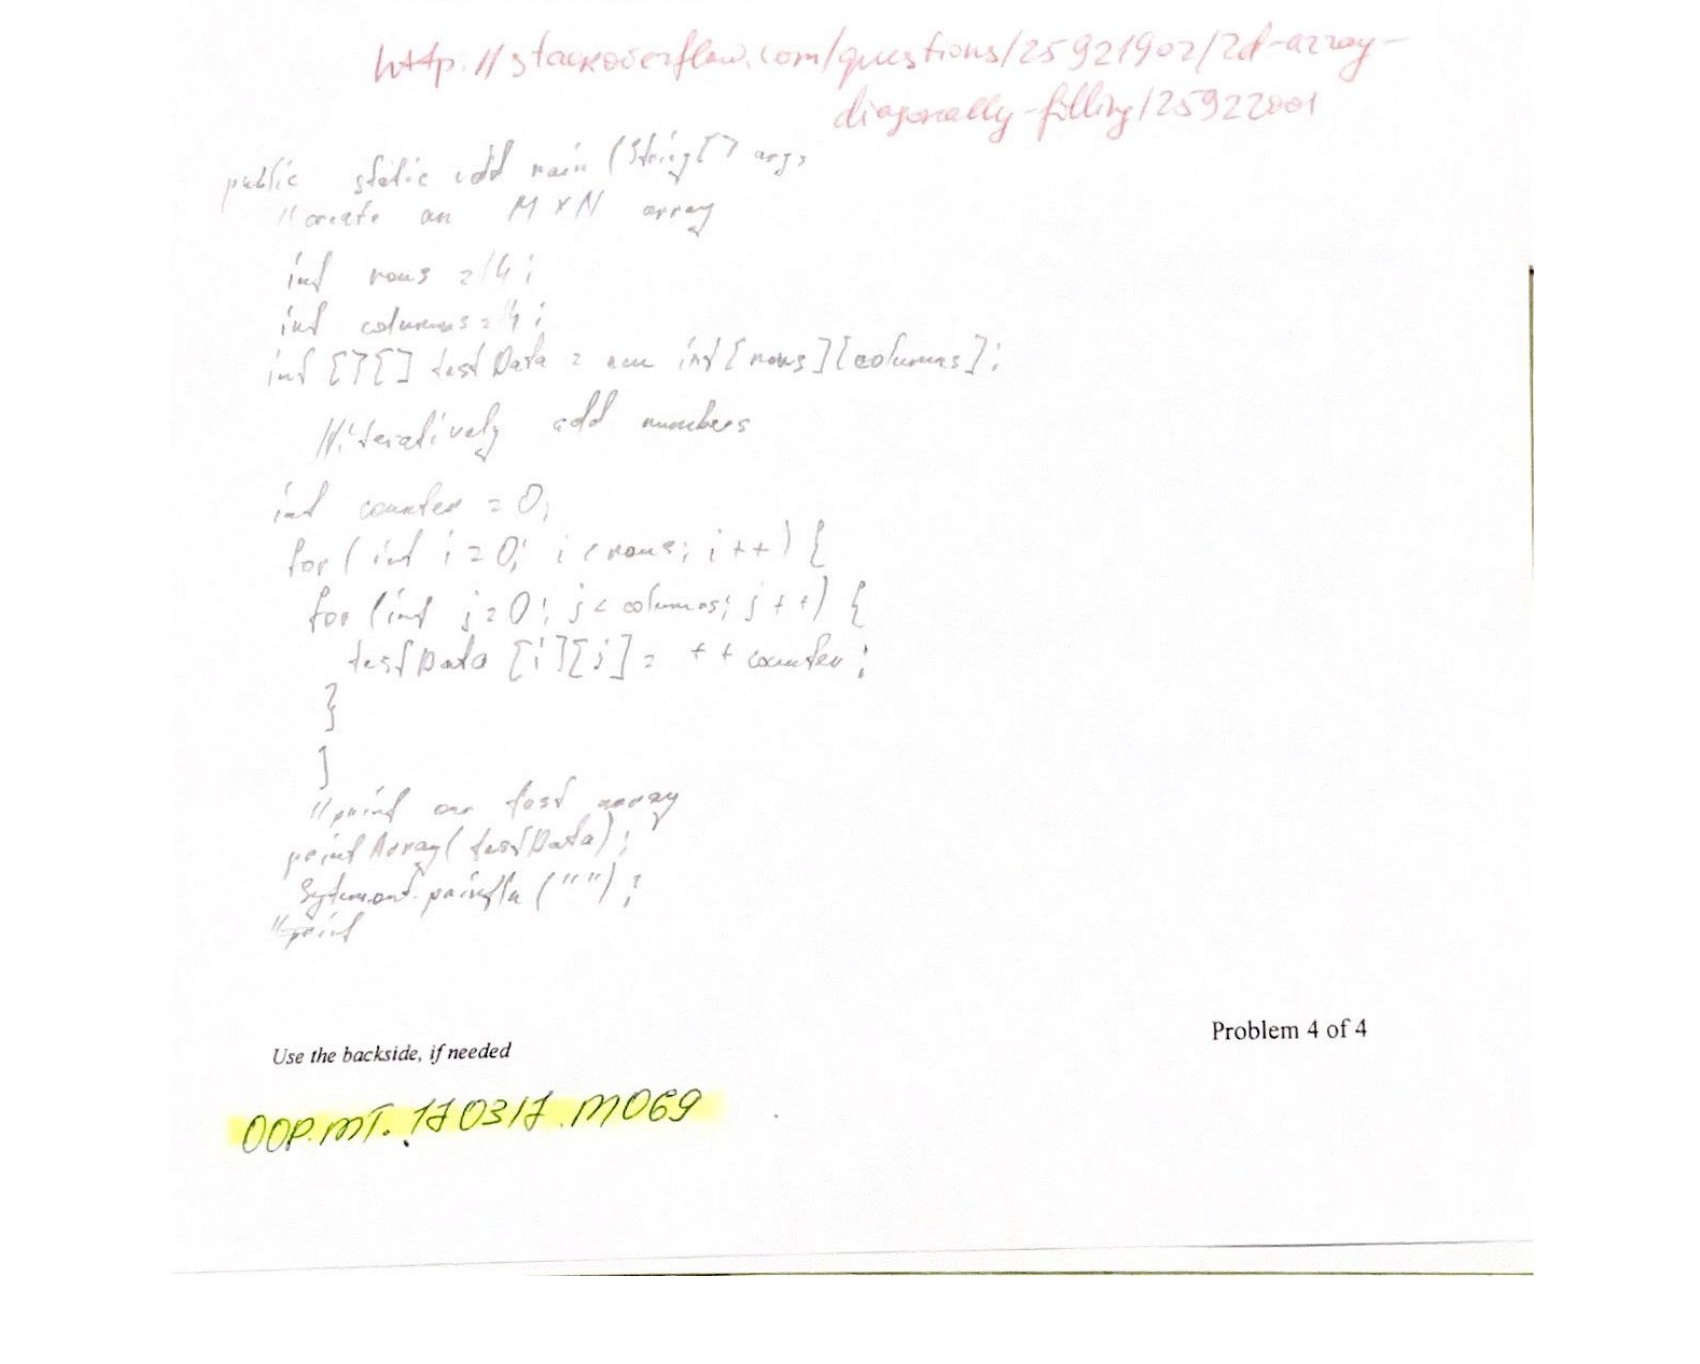 http://stackoverflow.com/questions/25921902/2d-array-
diagonally-filling/25922001
public static void main (String[] args
//create an M x N array
int rows = 4;
int columns = 4;
int [][] testData = new int[rows][columns];
//iteratively add numbers
int counter = 0;
for (int i = 0; i < rows; i++) {
for (int j = 0; j < columns; j++) {
testData [i][j] = ++counter;
}
}
//print our test array
printArray(testData);
System.out.println("");
//print
Use the backside, if needed
Problem 4 of 4
OOP.MT.170317.M069